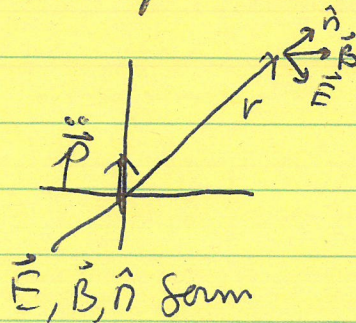 n̂
B⃗
E⃗
r
p̈⃗
E⃗, B⃗, n̂ form